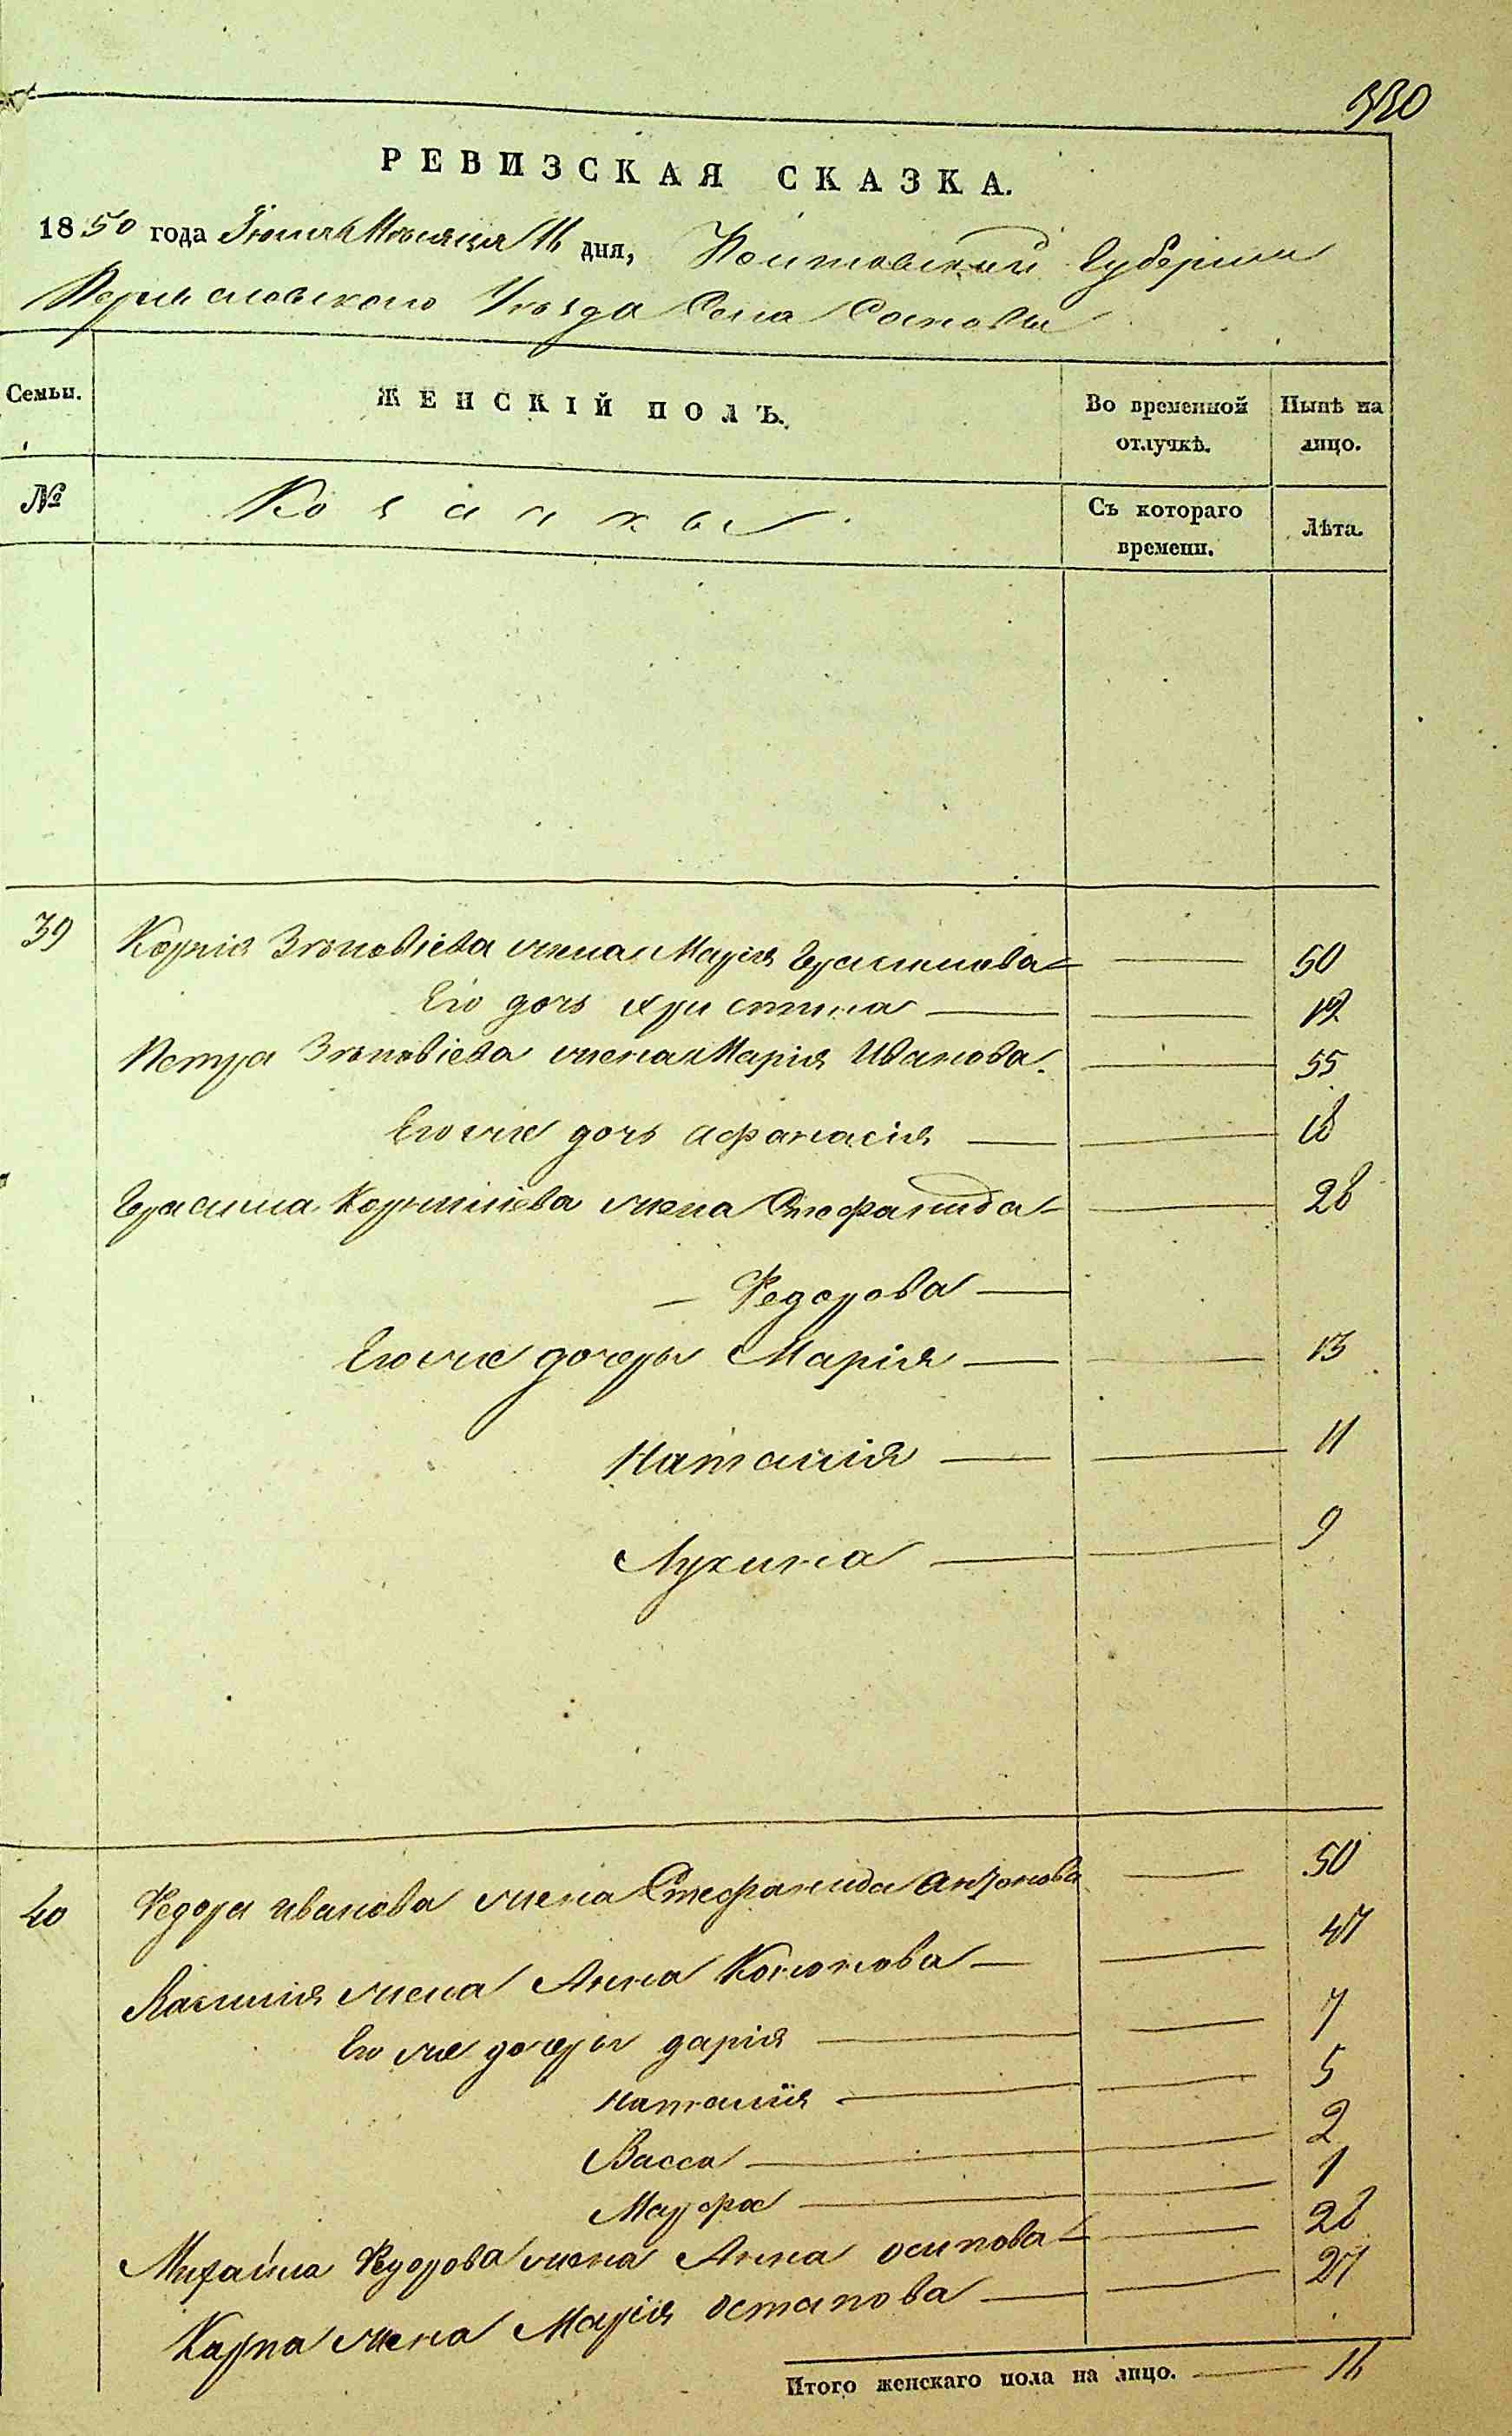 330
РЕВИЗСКАЯ СКАЗКА.
1850 года Іюня Месяца 16 дня, Полтавской Губерніи
Переяславского Уезда Села Сосновы
Семьи. ЖЕНСКІЙ ПОЛЪ. Во временной отлучкѣ. Нынѣ на лицо.
№ Козачки Съ котораго времени. Лѣта.
39 Корнія Зѣновіева жена Марія Герасимова 50
Его дочь христина 12
Петра Зѣновіева жена Марія Иванова 55
Его же дочь афанасія 18
Герасима Корниліева жена Стефанида 28
Федорова
Его же дочеры Марія 13
Наталія 11
Лукина 9
40 Федора иванова жена Стефанида антонова 50
Василия жена Анна Кононова 47
Его же дочеры дарія 7
наталія 5
Васса 2
Марфа 1
Михайла Федорова жена Анна осипова 28
Карпа жена Марія остапова 27
Итого женскаго пола на лицо. 16